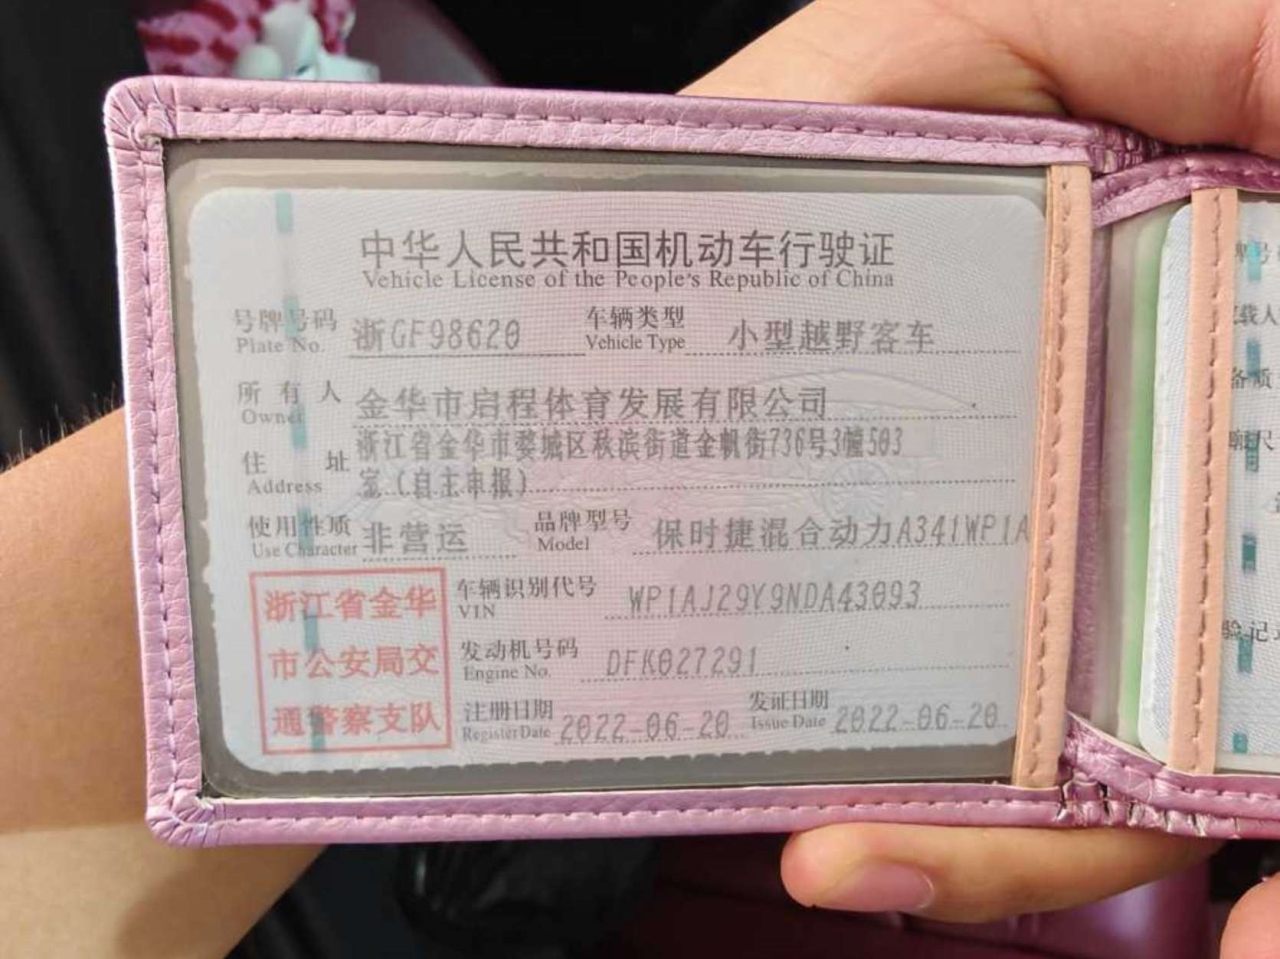 中华人民共和国机动车行驶证
Vehicle License of the People's Republic of China
号牌号码 浙GF98620 车辆类型 小型越野客车
Plate No. Vehicle Type
所有人 金华市启程体育发展有限公司
Owner
住址 浙江省金华市婺城区秋滨街道金帆街736号3幢503
Address 室(自主申报)
使用性质 非营运 品牌型号 保时捷混合动力A341WP1A
Use Character Model
浙江省金华
市公安局交
通警察支队
车辆识别代号 WP1AJ29Y9NDA43093
VIN
发动机号码 DFK027291
Engine No.
注册日期 2022-06-20 发证日期 2022-06-20
Register Date Issue Date